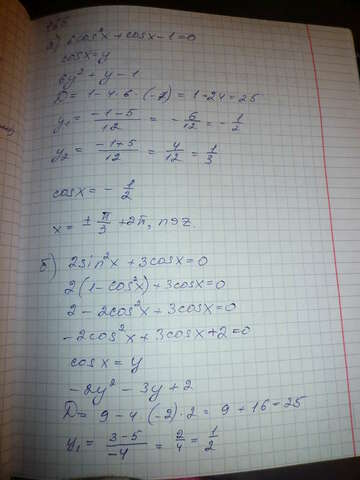 165
а) 6cos²x + cosx - 1 = 0
cosx = y
6y² + y - 1
D = 1 - 4 · 6 · (-1) = 1 - 24 = 25
y₁ = (-1-5)/12 = -6/12 = -1/2
y₂ = (-1+5)/12 = 4/12 = 1/3
cosx = -1/2
x = ± π/3 + 2π, n∋z.
б) 2sin²x + 3cosx = 0
2(1 - cos²x) + 3cosx = 0
2 - 2cos²x + 3cosx = 0
-2cos²x + 3cosx + 2 = 0
cosx = y
-2y² - 3y + 2
D = 9 - 4 (-2) · 2 = 9 + 16 = 25
y₁ = (3-5)/-4 = 2/4 = 1/2